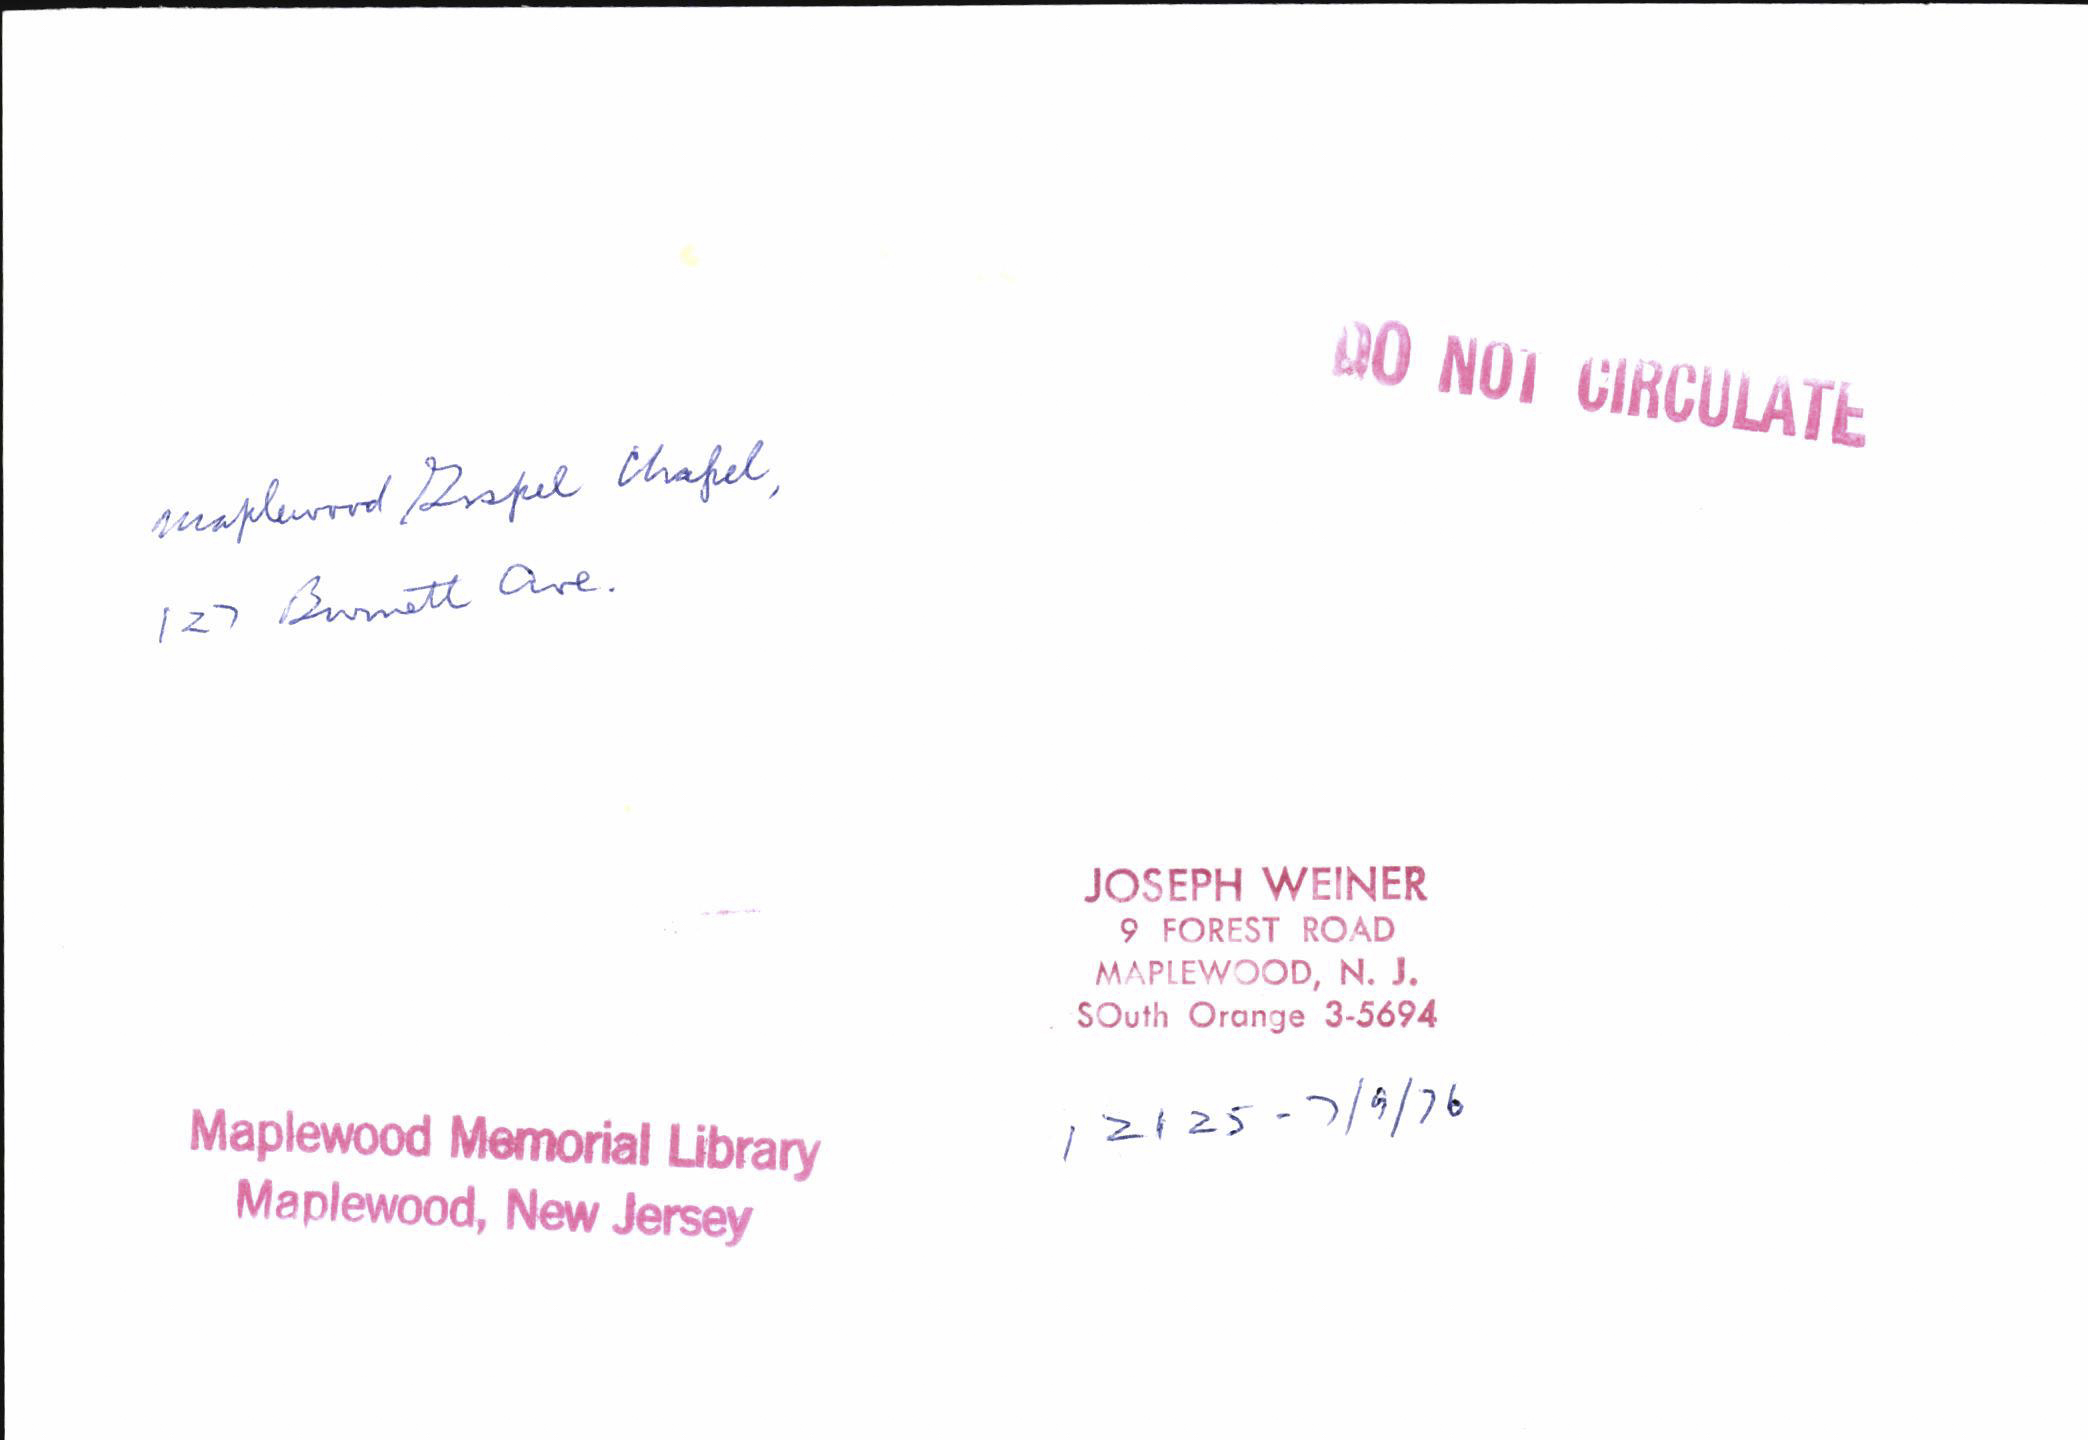 DO NOT CIRCULATE
Maplewood Gospel Chapel,
127 Burnett Ave.
JOSEPH WEINER
9 FOREST ROAD
MAPLEWOOD, N. J.
SOuth Orange 3-5694
12125-7/9/76
Maplewood Memorial Library
Maplewood, New Jersey